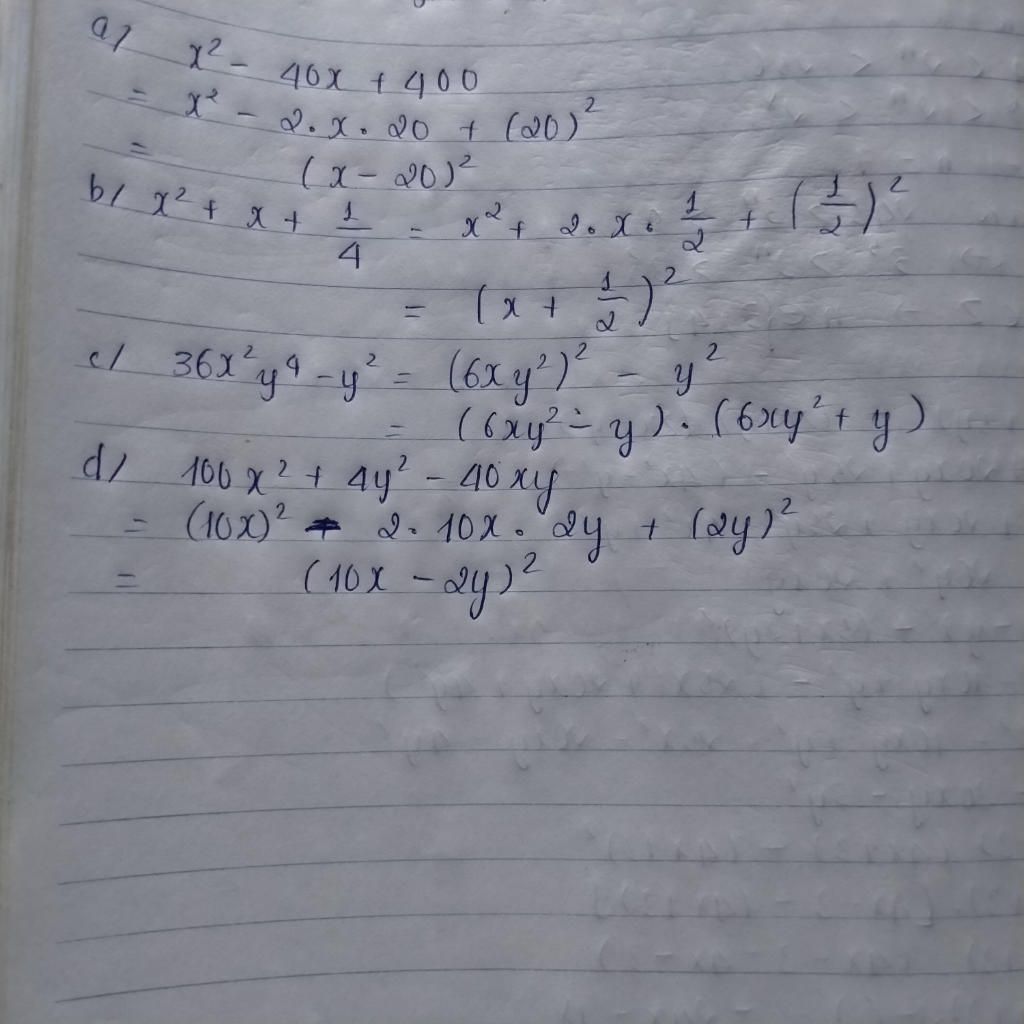 a/ x² - 40x + 400
= x² - 2.x.20 + (20)²
= (x - 20)²
b/ x² + x + 1/4 = x² + 2.x.1/2 + (1/2)²
= (x + 1/2)²
c/ 36x²y⁴ - y² = (6xy²)² - y²
= (6xy² - y).(6xy² + y)
d/ 100x² + 4y² - 40xy
= (10x)² - 2.10x.2y + (2y)²
= (10x - 2y)²